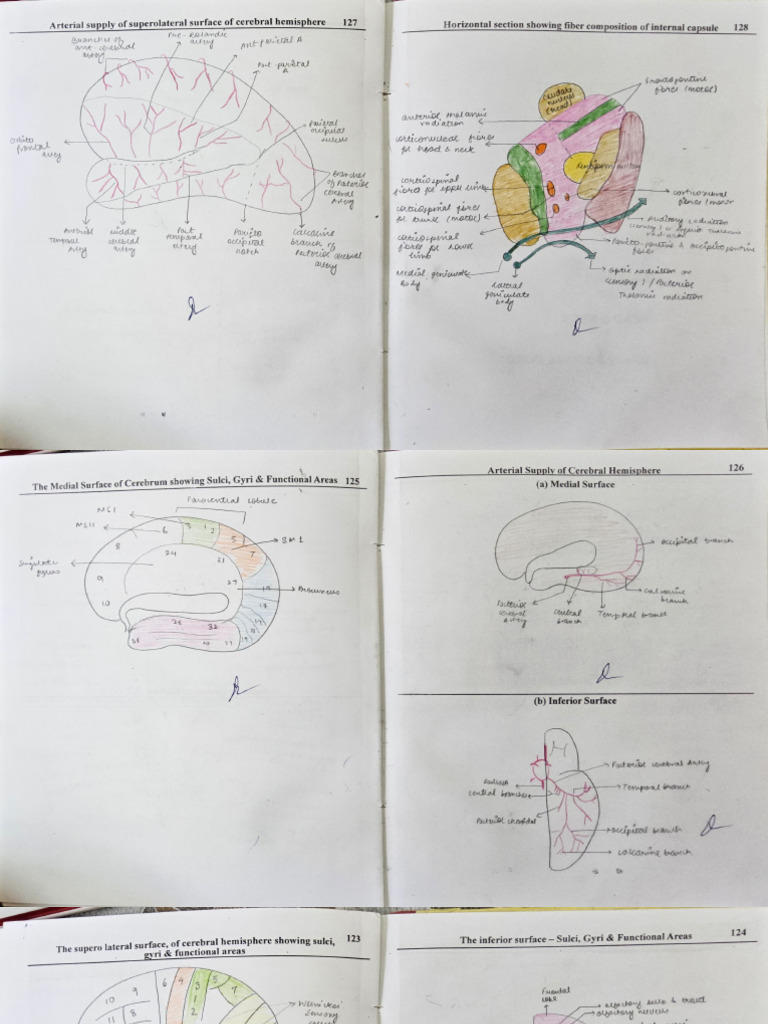 Arterial supply of superolateral surface of cerebral hemisphere 127
Branches of
ant. cerebral
artery
Pre-Rolandic
artery
Ant Parietal A
Post parietal
A
Orbito
frontal
artery
Parietal
occipital
sulcus
Branches
of Posterior
cerebral
Artery
Anterior
Temporal
Artery
Middle
cerebral
artery
Post
temporal
artery
Parito
occipital
notch
Calcarine
branch of
Posterior cerebral
artery
Horizontal section showing fiber composition of internal capsule 128
Caudate
nucleus
(head)
Frontopontine
fibres (motor)
anterior thalamic
radiation
corticonuclear fibres
for head & neck
corticospinal
fibres for upper limb
corticospinal fibres
for trunk (motor)
corticospinal
fibres for lower
limb
Medial geniculate
body
Lateral
geniculate
body
Auditory radiation
Parito-pontine & occipitopontine
fibres
optic radiation or
(sensory) / Posterior
Thalamic radiation
The Medial Surface of Cerebrum showing Sulci, Gyri & Functional Areas 125
Paracentral lobule
MS I
MS II
6
3 1 2
5
7
SM I
8
24
31
9
10
Precuneus
Arterial Supply of Cerebral Hemisphere 126
(a) Medial Surface
occipital branch
Calcarine
branch
Posterior
cerebral
Artery
Central
branch
Temporal branch
(b) Inferior Surface
Posterior cerebral Artery
Temporal branch
central branches
Posterior choroidal
occipital branch
calcarine branch
The supero lateral surface, of cerebral hemisphere showing sulci, 123
gyri & functional areas
10
9
8
11
6
4
3
1
2
5
7
Wernickes
Sensory
The inferior surface – Sulci, Gyri & Functional Areas 124
Frontal
lobe
olfactory bulb & tract
olfactory nerves